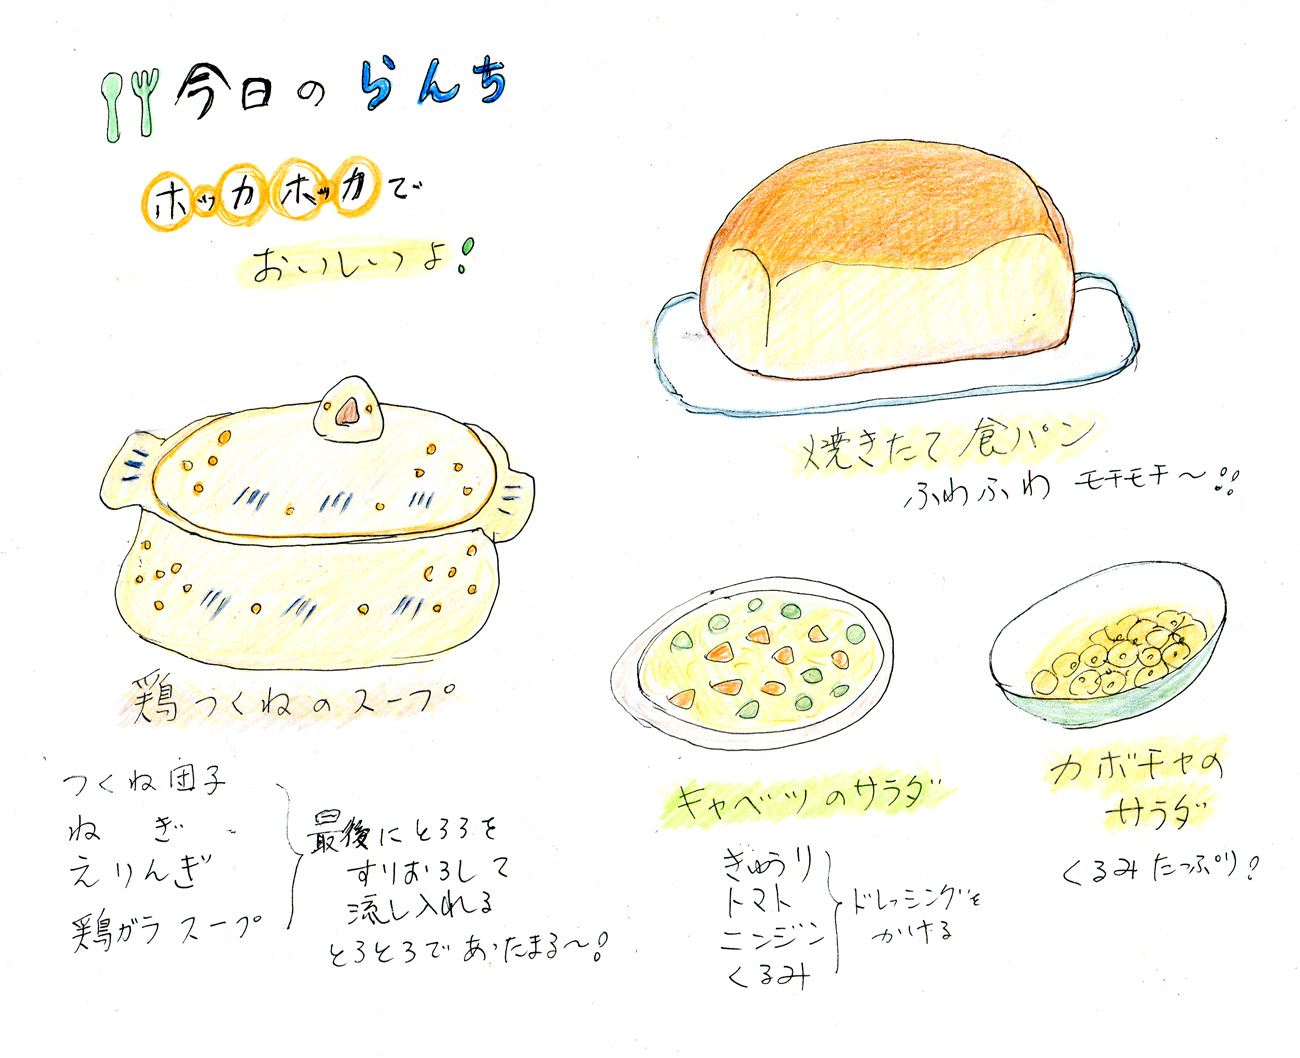 今日のらんち
ホッカホッカで
おいしいよ!
焼きたて食パン
ふわふわ モチモチ〜
鶏つくねのスープ
つくね団子
ねぎ
えりんぎ
鶏ガラスープ
最後にとろろを
すりおろして
流し入れる
とろとろであったまる〜!
キャベツのサラダ
きゅうり
トマト
ニンジン
くるみ
ドレッシングを
かける
カボチャの
サラダ
くるみたっぷり!